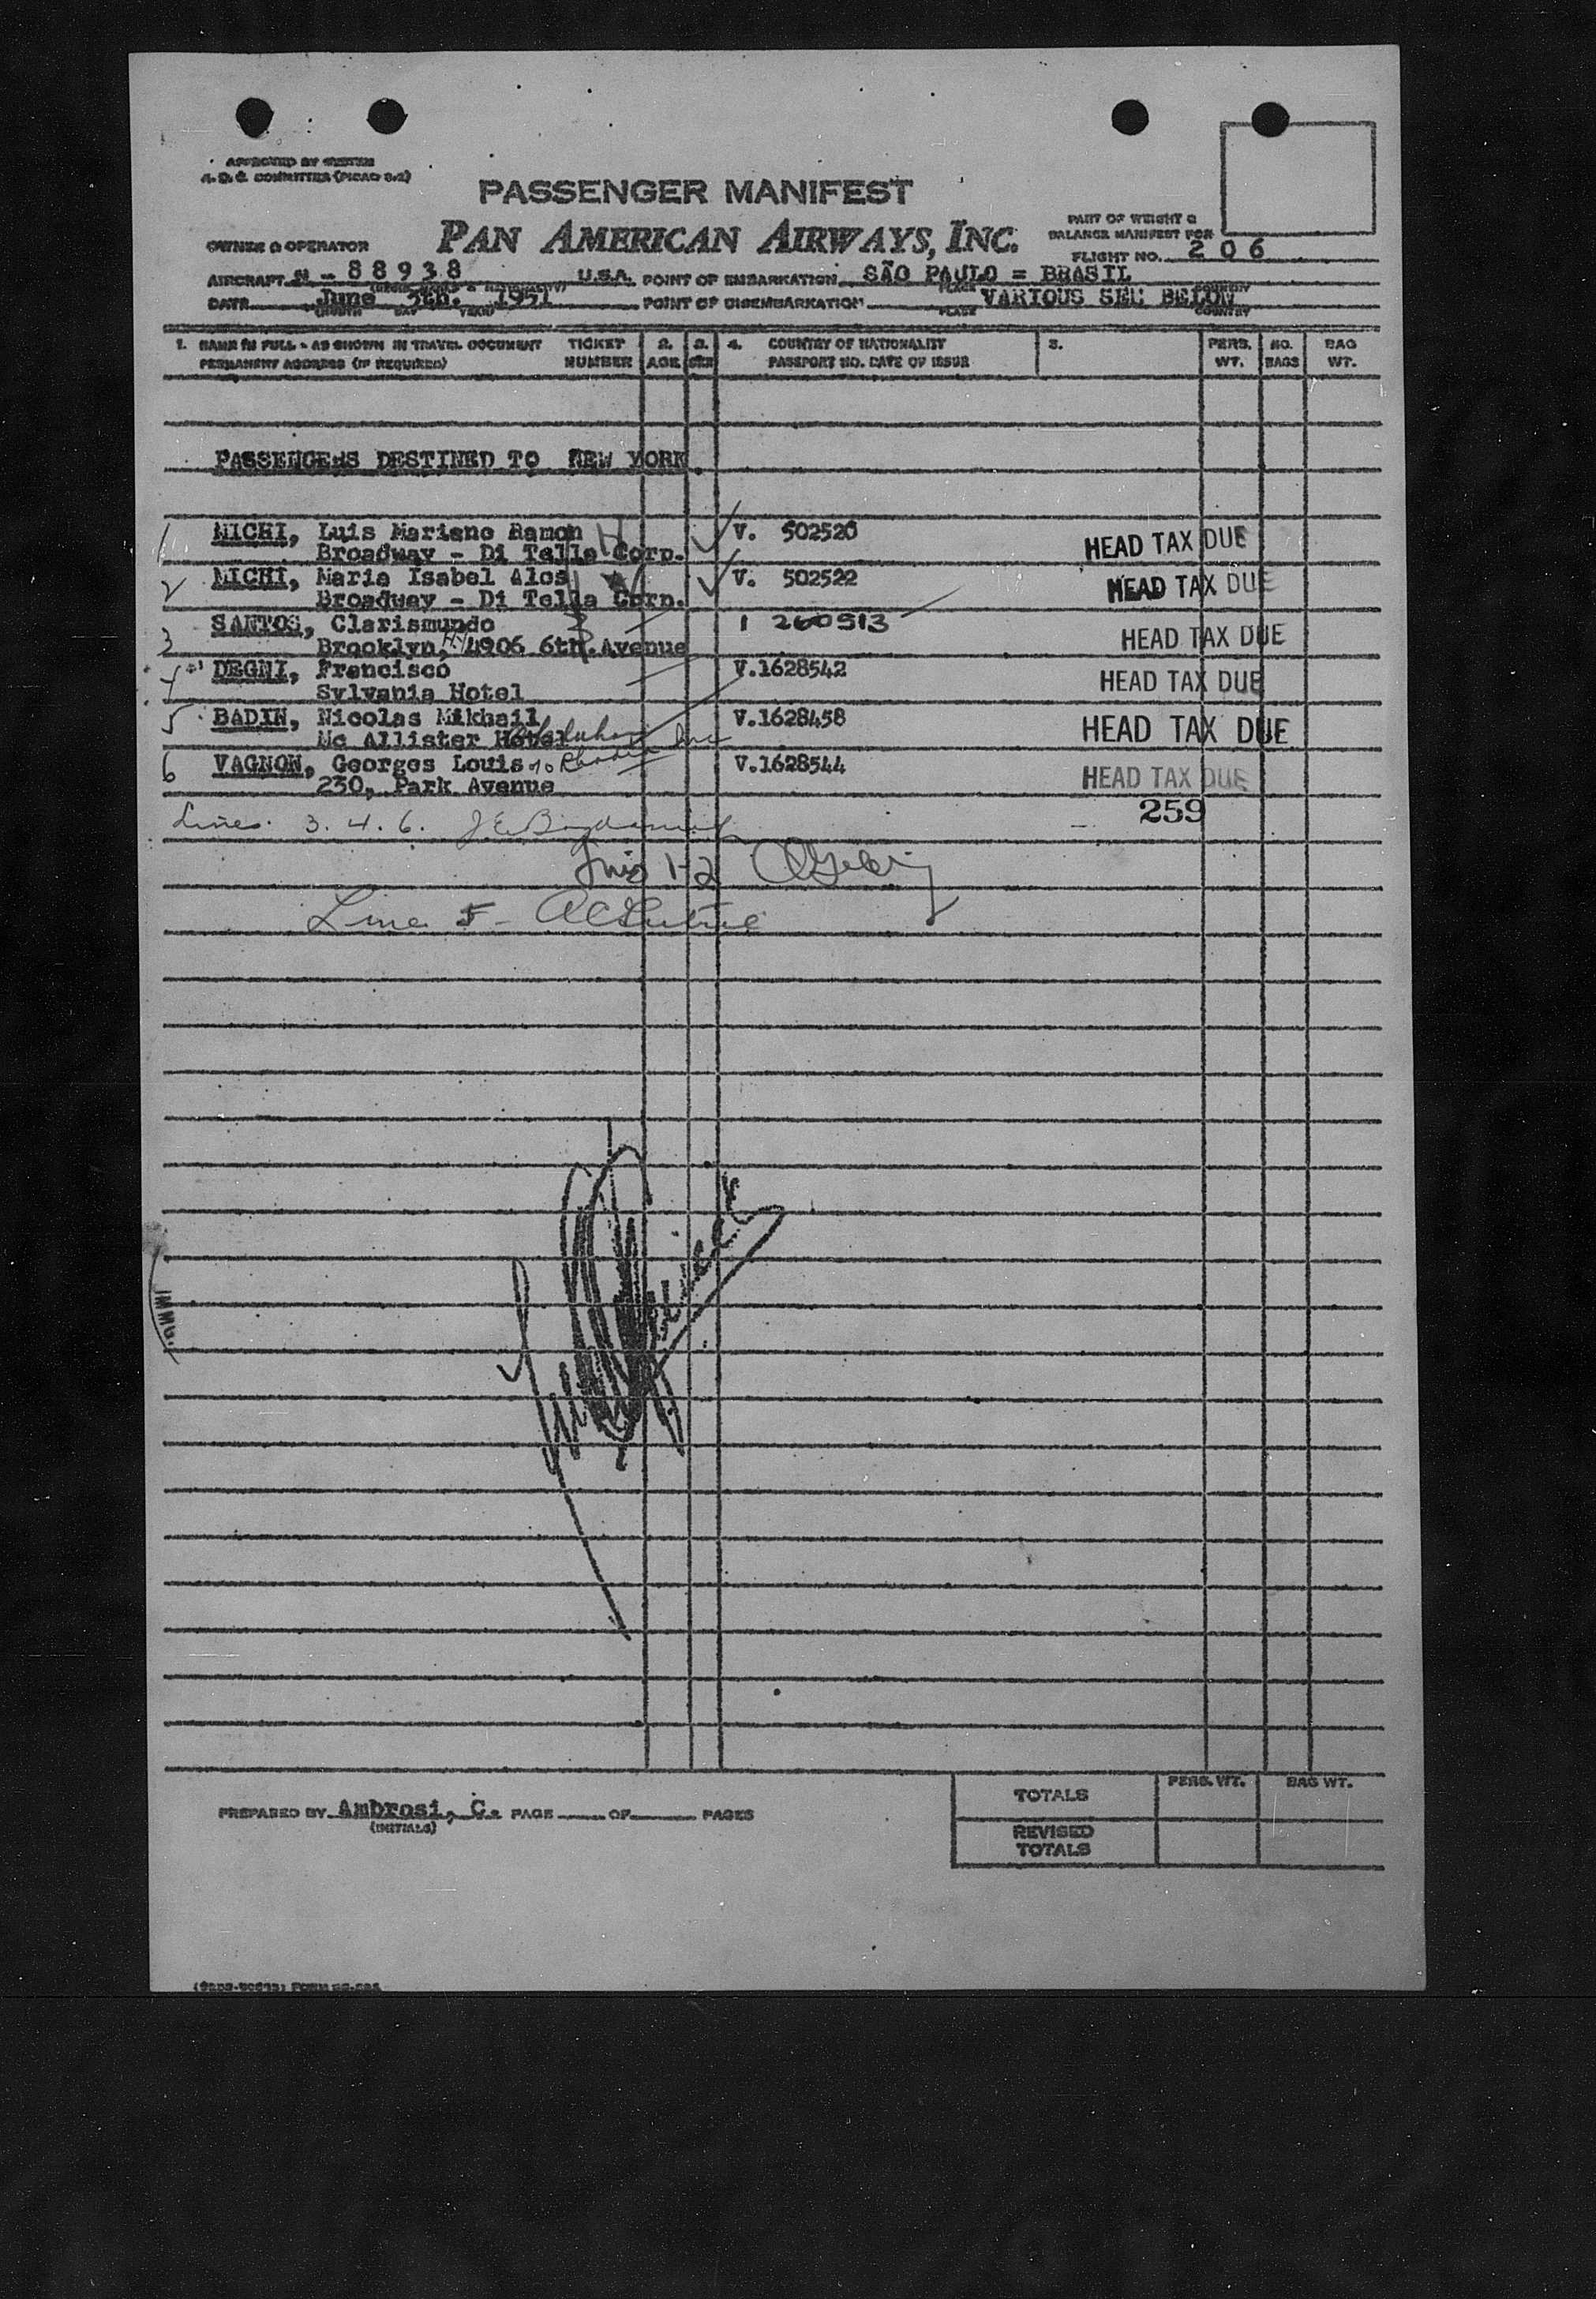 APPROVED BY SYSTEM
A. D. C. COMMITTEE (PICAO 9.2)
PASSENGER MANIFEST
PAN AMERICAN AIRWAYS, INC.
PART OF WEIGHT &
BALANCE MANIFEST FOR
OWNER & OPERATOR
FLIGHT NO. 206
AIRCRAFT N - 88938 U.S.A. POINT OF EMBARKATION SÃO PAULO = BRASIL
DATE June 5th. 1951 POINT OF DISEMBARKATION VARIOUS SEE BELOW
MONTH DAY YEAR PLACE COUNTRY
1. NAME IN FULL - AS SHOWN IN TRAVEL DOCUMENT TICKET 2. 3. 4. COUNTRY OF NATIONALITY 5. PERS. NO. BAG
PERMANENT ADDRESS (IF REQUIRED) NUMBER AGE SEX PASSPORT NO. DATE OF ISSUE WT. BAGS WT.
PASSENGERS DESTINED TO NEW YORK.
1 MICHI, Luis Mariano Ramon V. 502520 HEAD TAX DUE
Broadway - Di Tella Corp.
2 MICHI, Maria Isabel Alos V. 502522 HEAD TAX DUE
Broadway - Di Tella Corp.
3 SANTOS, Clarismundo I 260513 HEAD TAX DUE
Brooklyn, NY 4906 6th. Avenue
4 DEGNI, Francisco V.1628542 HEAD TAX DUE
Sylvania Hotel
5 BADIN, Nicolas Mikhail V.1628458 HEAD TAX DUE
Mc Allister Hotel Inc
6 VAGNON, Georges Louis V.1628544 HEAD TAX DUE
230, Park Avenue
259
Lines. 3. 4. 6.
1-2
Line 5 -
IMMG.
PREPARED BY Ambrosi, C. PAGE OF PAGES
(INITIALS)
PERS. WT. BAG WT.
TOTALS
REVISED
TOTALS